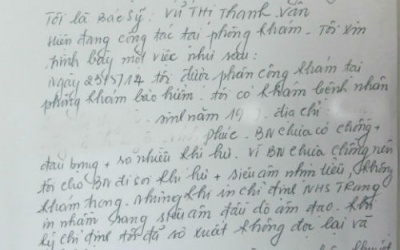 Tôi là Bác sỹ: Vũ Thị Thanh Vân
Hiện đang công tác tại phòng khám. Tôi xin
trình bày một việc như sau:
Ngày 23/5/14 tôi được phân công khám tại
phòng khám bảo hiểm. Tôi có khám bệnh nhân
sinh năm 19 địa chỉ
phúc. BN chưa có chồng +
đau bụng + ra nhiều khí hư. Vì BN chưa chồng nên
tôi cho BN đi soi khí hư + siêu âm nhịn tiểu, không
khám trong. Nhưng khi in chỉ định NHS Trang
in nhầm sang siêu âm đầu dò âm đạo. Khi
ký chỉ định tôi đã sơ xuất không đọc lại và